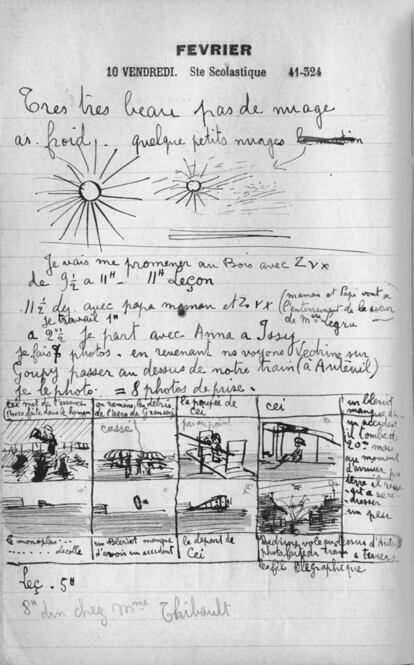 FEVRIER
10 VENDREDI. Ste Scolastique 41-324
Tres tres beau pas de nuage
as. froid,. quelque petits nuages
Je vais me promener au Bois avec Zyx
de 9h ½ a 11H - 11H Leçon
11 ½ dej. avec papa maman et Zyx (maman et Papi vont a
l'enterrement de la soeur
de Mme Legru
Je travail 1H
a 2H ½ Je part avec Anna a Issy
Je fais 7 photos. en revenant ns voyons Vedrine sur
Goupy passer au dessus de notre train (à Auteuil)
Je le photo. = 8 photos de prise.
met de l'essence
Photo faite dans le hangar
on ramene les débris
de l'aero de
la poupée de
cei
cei
un Bleriot
manque d'a
un accident
il tombe de
20m mais
au moment
d'arriver pa
terre il
dresser
un peu
cassé
pas au point
le monoplan
decolle
un Bleriot manque
d'avoir un accident
le départ de
cei
Vedrine vole au dessus d'Aut
photo faite du train a travers
les fils télégraphique
Leç. 5H
8H din chez Mme Thibault